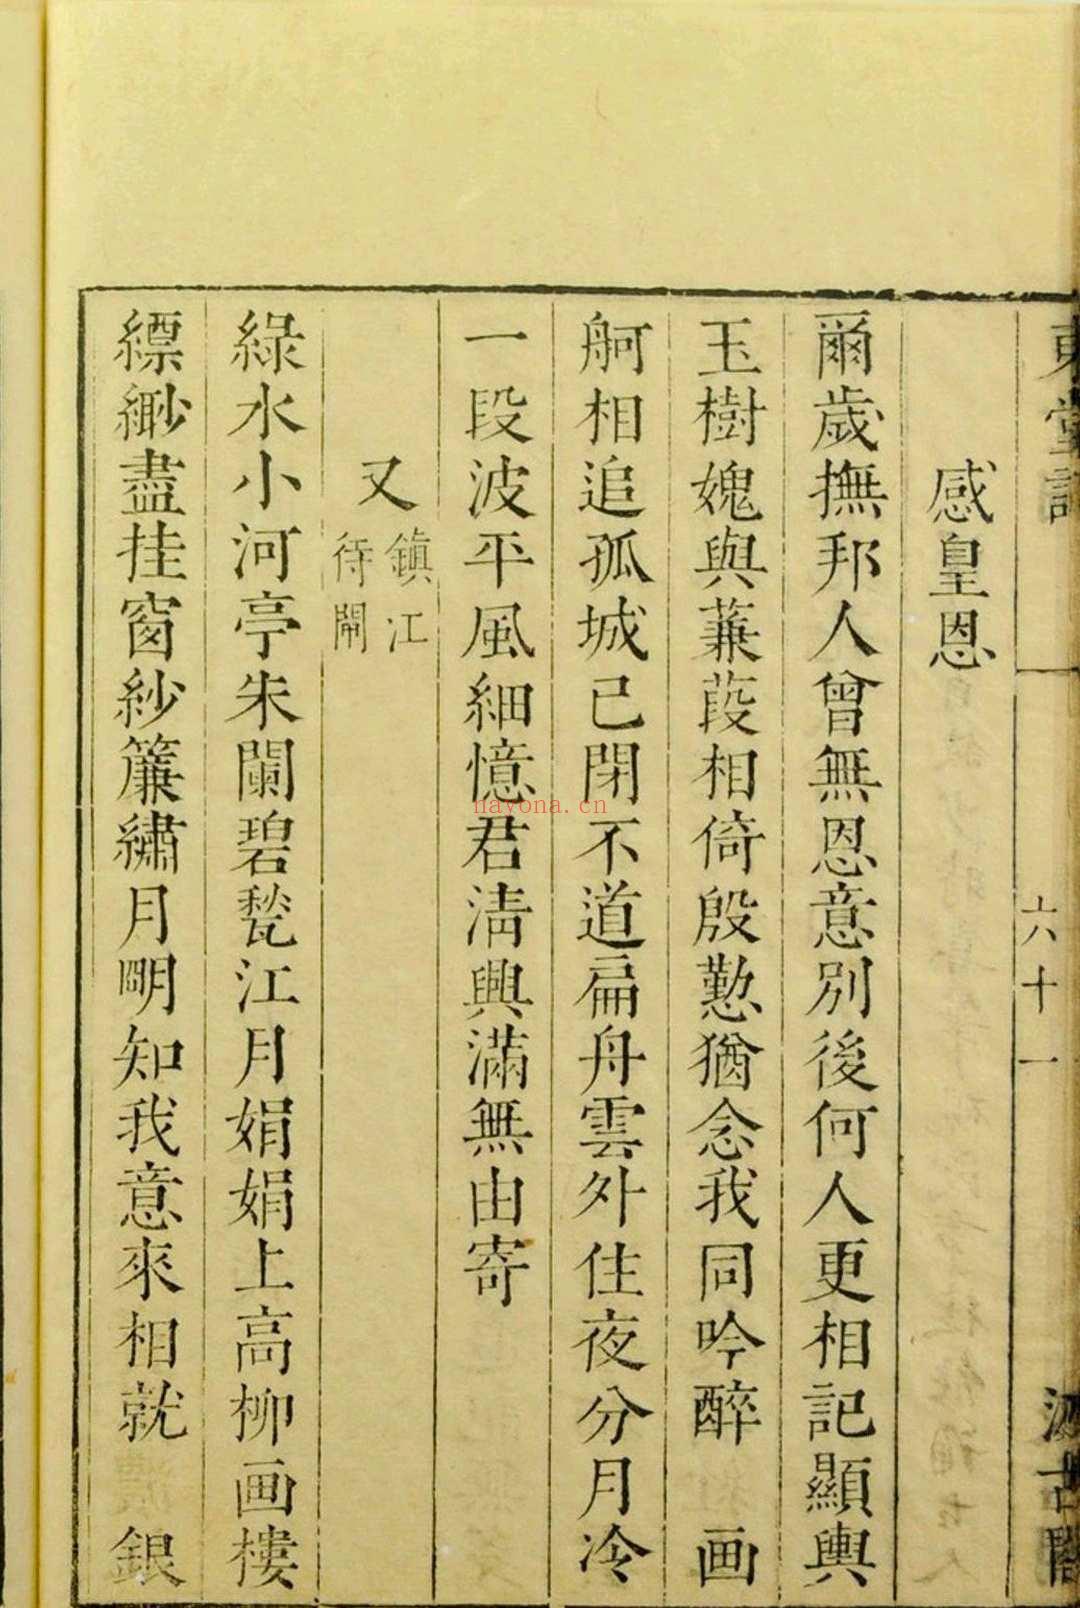 東堂詞
六十一
汲古閣
感皇恩
爾歲撫邦人曾無恩意別後何人更相記顯輿
玉樹媿與蒹葭相倚殷懃猶念我同吟醉　画
舸相追孤城已閉不道扁舟雲外住夜分月冷
一段波平風細憶君清興滿無由寄
又鎮江
待閘
綠水小河亭朱闌碧甃江月娟娟上高柳画樓
縹緲盡挂窗紗簾繡月明知我意來相就　銀
navona.cn